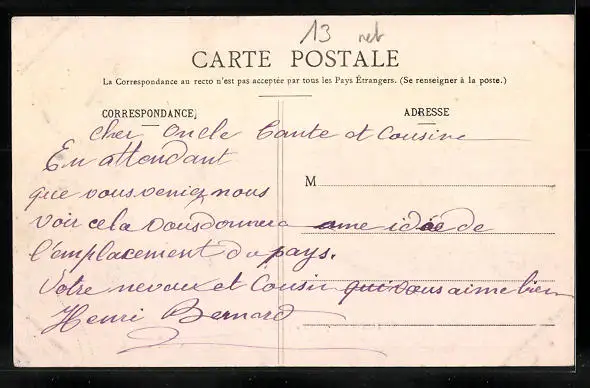 13 net
CARTE POSTALE
La Correspondance au recto n'est pas acceptée par tous les Pays Étrangers. (Se renseigner à la poste.)
CORRESPONDANCE
ADRESSE
Cher Oncle Tante et Cousine
En attendant
que vous veniez nous
M
voir cela vous donnera une idée de
l'emplacement du pays.
Votre neveux et Cousin qui vous aime bien
Henri Bernard